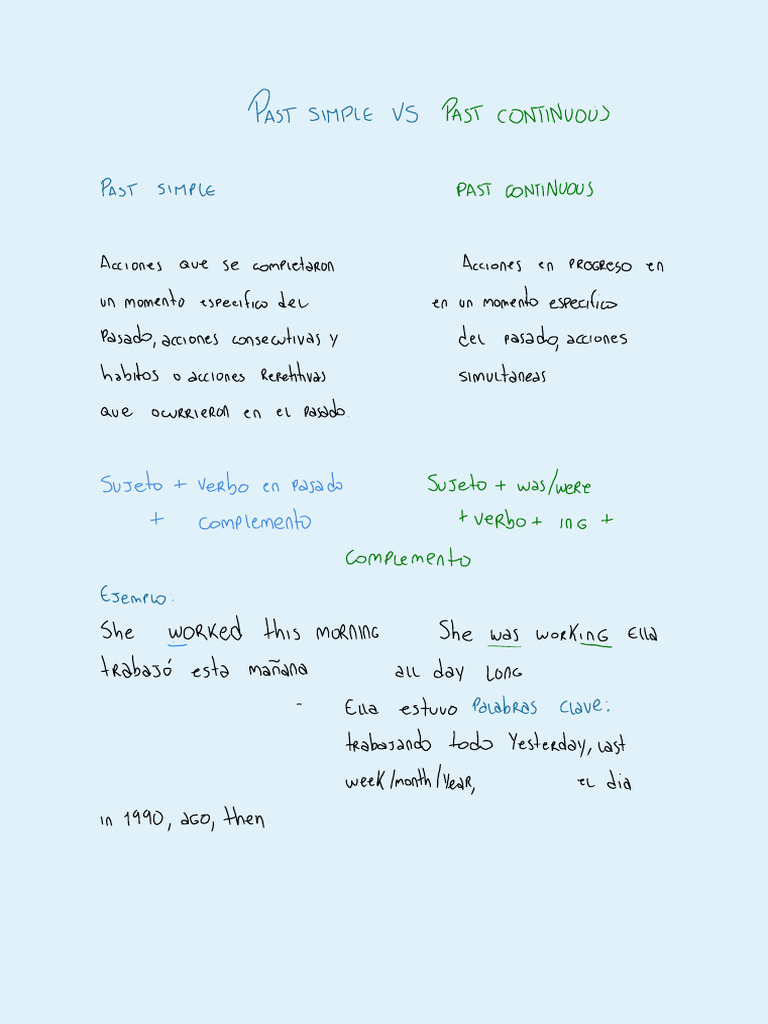 PAST SIMPLE VS PAST CONTINUOUS
PAST SIMPLE PAST CONTINUOUS
Acciones que se completaron Acciones en progreso en
un momento especifico del en un momento especifico
pasado, acciones consecutivas y del pasado, acciones
habitos o acciones repetitivas simultaneas
que ocurrieron en el pasado.
Sujeto + verbo en pasado Sujeto + was/were
+ complemento + verbo + ing +
complemento
Ejemplo:
She worked this morning She was working Ella
trabajó esta mañana all day long
- Ella estuvo Palabras clave:
trabajando todo Yesterday, last
week/month/year, el dia
in 1990, ago, then